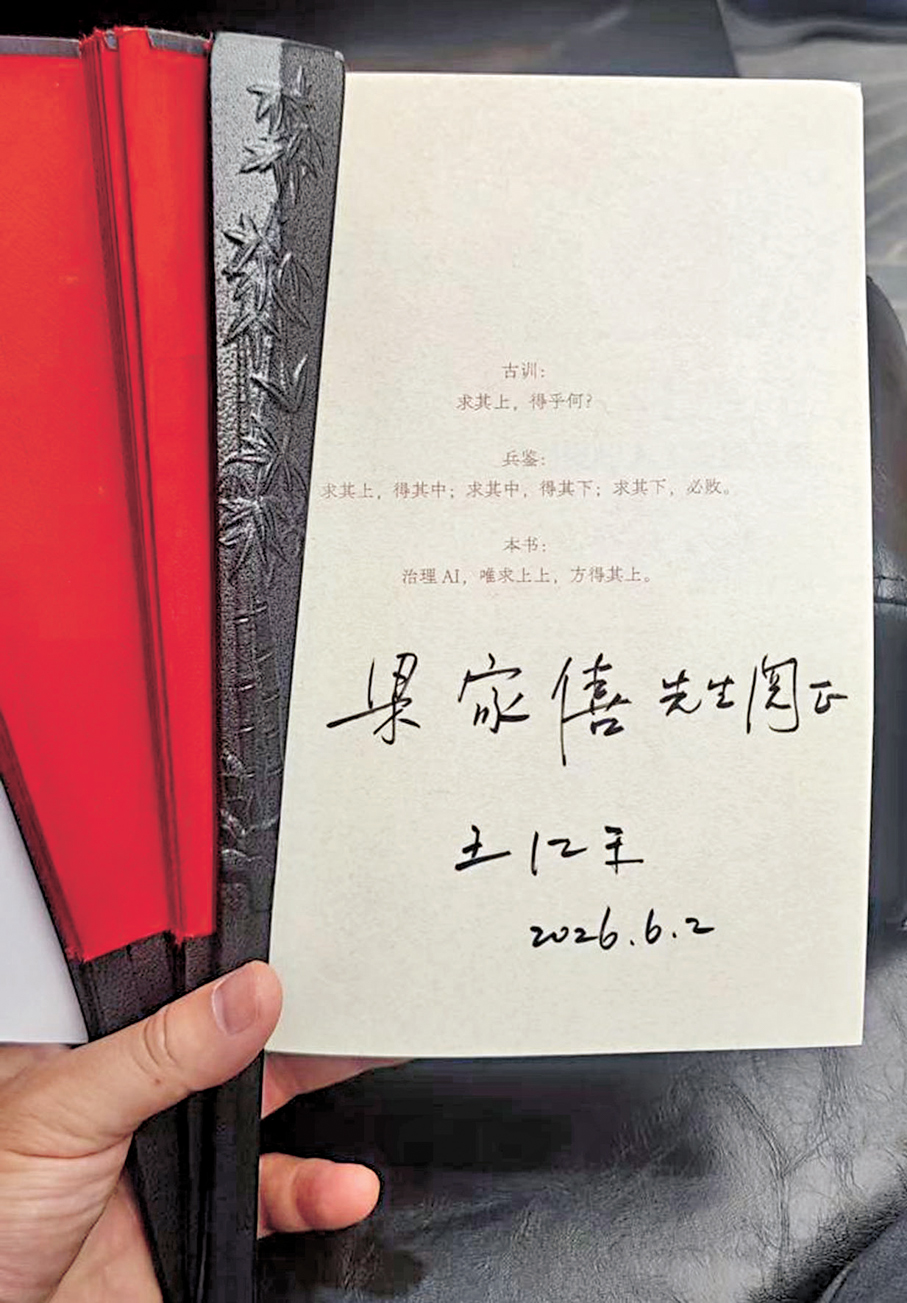 古训：
求其上，得乎何？
兵鉴：
求其上，得其中；求其中，得其下；求其下，必败。
本书：
治理 AI，唯求上上，方得其上。
梁家僖先生阅正
王江平
2026.6.2